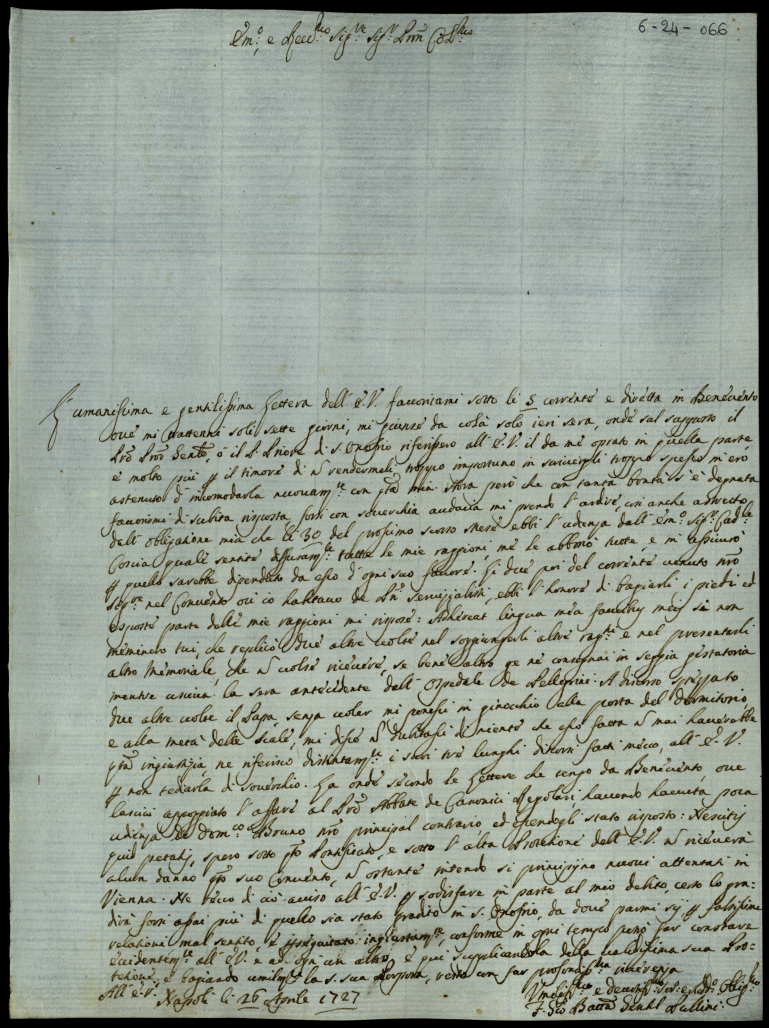 6-24-066
Em.o e Rev.mo Sig.re Sig.r Pron Col.mo
L'umanissima e gentilissima lettera dell'E.V. favoritami sotto li 5 corrente e diretta in Benevento
ove mi trattenni soli sette giorni, mi giunse da colà solo ieri sera, onde sul supposto il
Prô Gentê, o il P. Priore di S. Onofrio riferissero all'E.V. il da me oprato in quella parte
e molto più p il timore di ñ rendermeli troppo importuno in scrivergli troppo spesso m'ero
astenuto d'incomodarla nuovam.te con pta mia. Ora però che con tanta bontà s'è degnata
favorirmi di subita risposta, forsi con soverchia audacia mi prendo l'ardire, così anche astretto
dall'obligatione mia che li 30 del prossimo scorso mese ebbi l'udenza dall'Em.o Sig.r Card.le
Coscia quale sentite diffusam.te tutte le mie raggioni me le abbonò tutte e mi assicurò
p quello sarebbe dipenduto da esso d'ogni suo favore. Li due poi del corrente venuto nrô
Sig.re nel Convento ove io habitavo de Pni Servi, ebbi l'honore di bagiarli i piedi ed
esposte parte delle mie raggioni mi rispose: Adhereat lingua mea faucibus meis si non
meminero tui, che replicò due altre volte nel soggiungerli altre rag.ni e nel presentarli
altro Memoriale, che ñ volse ricevere, se bene altro ge ne consegnai in seggia gestatoria
mentre usciva la sera antecedente dell'Ospedale de Pellegrini. A discorso spezzato
due altre volte il Papa, senza voler mi ponessi in ginocchio alla porta del dormitorio
e alla metà delle scale, mi disse ñ dubitassi di niente che esso fatta ñ mai haverebbe
pta ingiustizia ne riferirei distintam.te i suoi tre lunghi discorsi fatti meco, all'E.V.
p non tediarla di soverchio. Ha onde secondo le lettere che tengo da Benevento, ove
lasciai appoggiato l'affare al Prô Abbate de Canonici Regolari havendo havuta poca
udienza da Dom.co Bruno nrô principal contrario ed essendogli stato risposto: Nescitis
quid petatis, spero sotto pto Pontificato, e sotto l'alta Protetione dell'E.V. ñ riceverà
alcun danno pto suo Convento, ñ ostante intendo si principijno nuovi attentati in
Vienna. Ne reco di ciò aviso all'E.V. p sodisfare in parte al mio debito, certo lo gra-
dirà forsi assai più di quello sia stato gradito in S. Onofrio, da dove parmi sij p falsissime
relationi mal sentito, e pseguitato ingiustam.te, conforme in ogni tempo potrò far constare
evidentem.te all'E.V. e ad ogn'un altro, e qui supplicandola della validissima sua Pro-
tetione, e bagiando umilm.te la S. sua Porpora, resto con far profondiss.ma riverenza
All'E.V. Napoli li 26 Aprile 1727
Umiliss.mo e devotiss.mo Ser.e Oblig.mo
F. Gio Batta Gentil Pullini